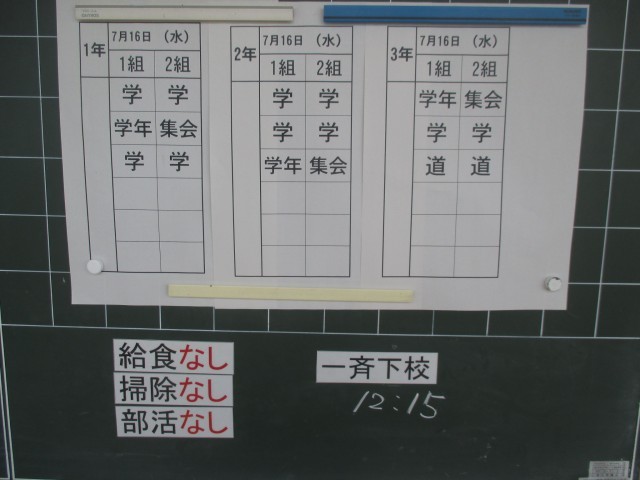 1年
7月16日 （水）
1組 2組
学 学
学年 集会
学 学
2年
7月16日 （水）
1組 2組
学 学
学 学
学年 集会
3年
7月16日 （水）
1組 2組
学年 集会
学 学
道 道
給食なし
掃除なし
部活なし
一斉下校
12:15